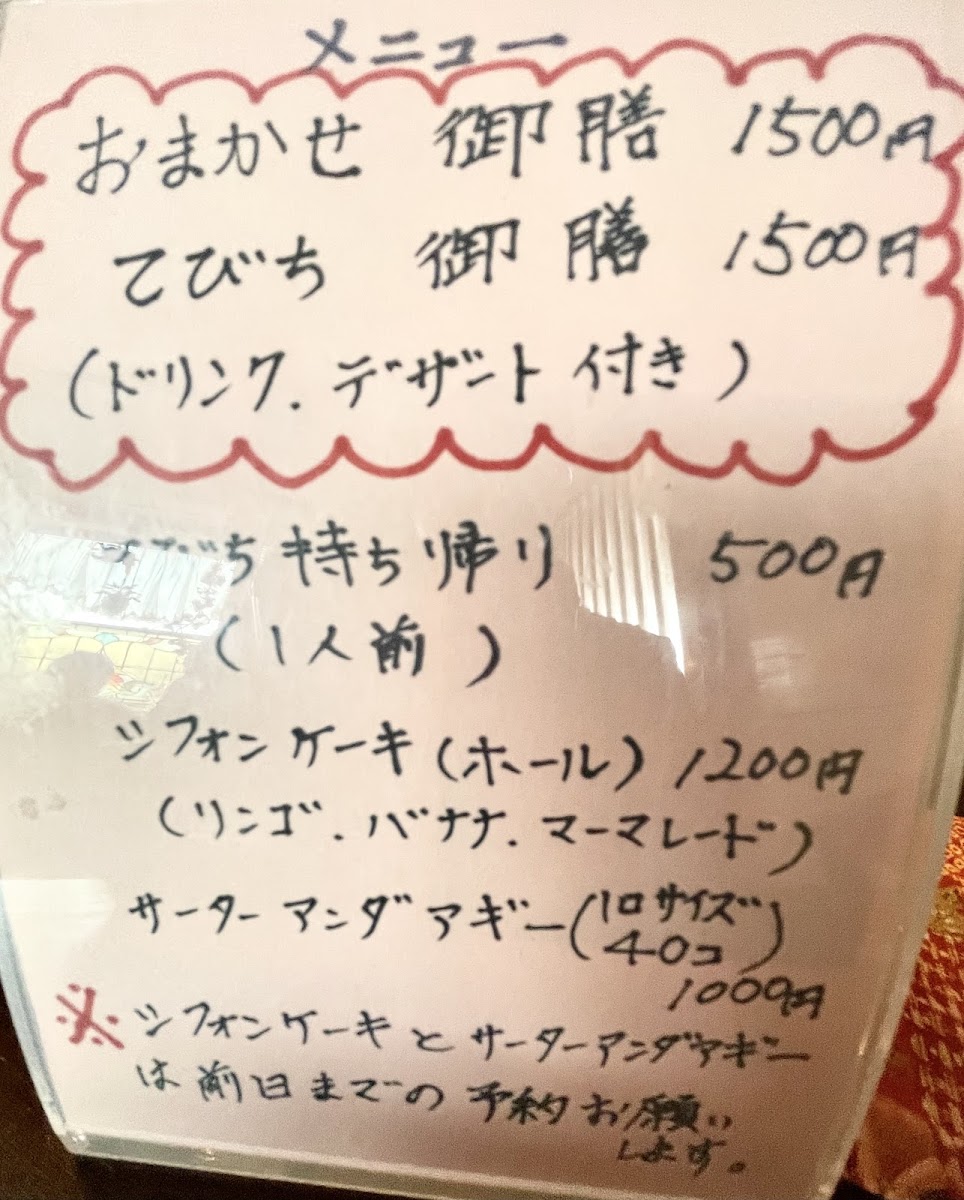 メニュー
おまかせ 御膳 1500円
てびち 御膳 1500円
(ドリンク.デザート付き)
てびち持ち帰り 500円
(1人前)
シフォンケーキ(ホール) 1200円
(リンゴ.バナナ.マーマレード)
サーターアンダアギー(1口サイズ
40コ)
1000円
※シフォンケーキとサーターアンダアギー
は前日までの予約お願い
します。